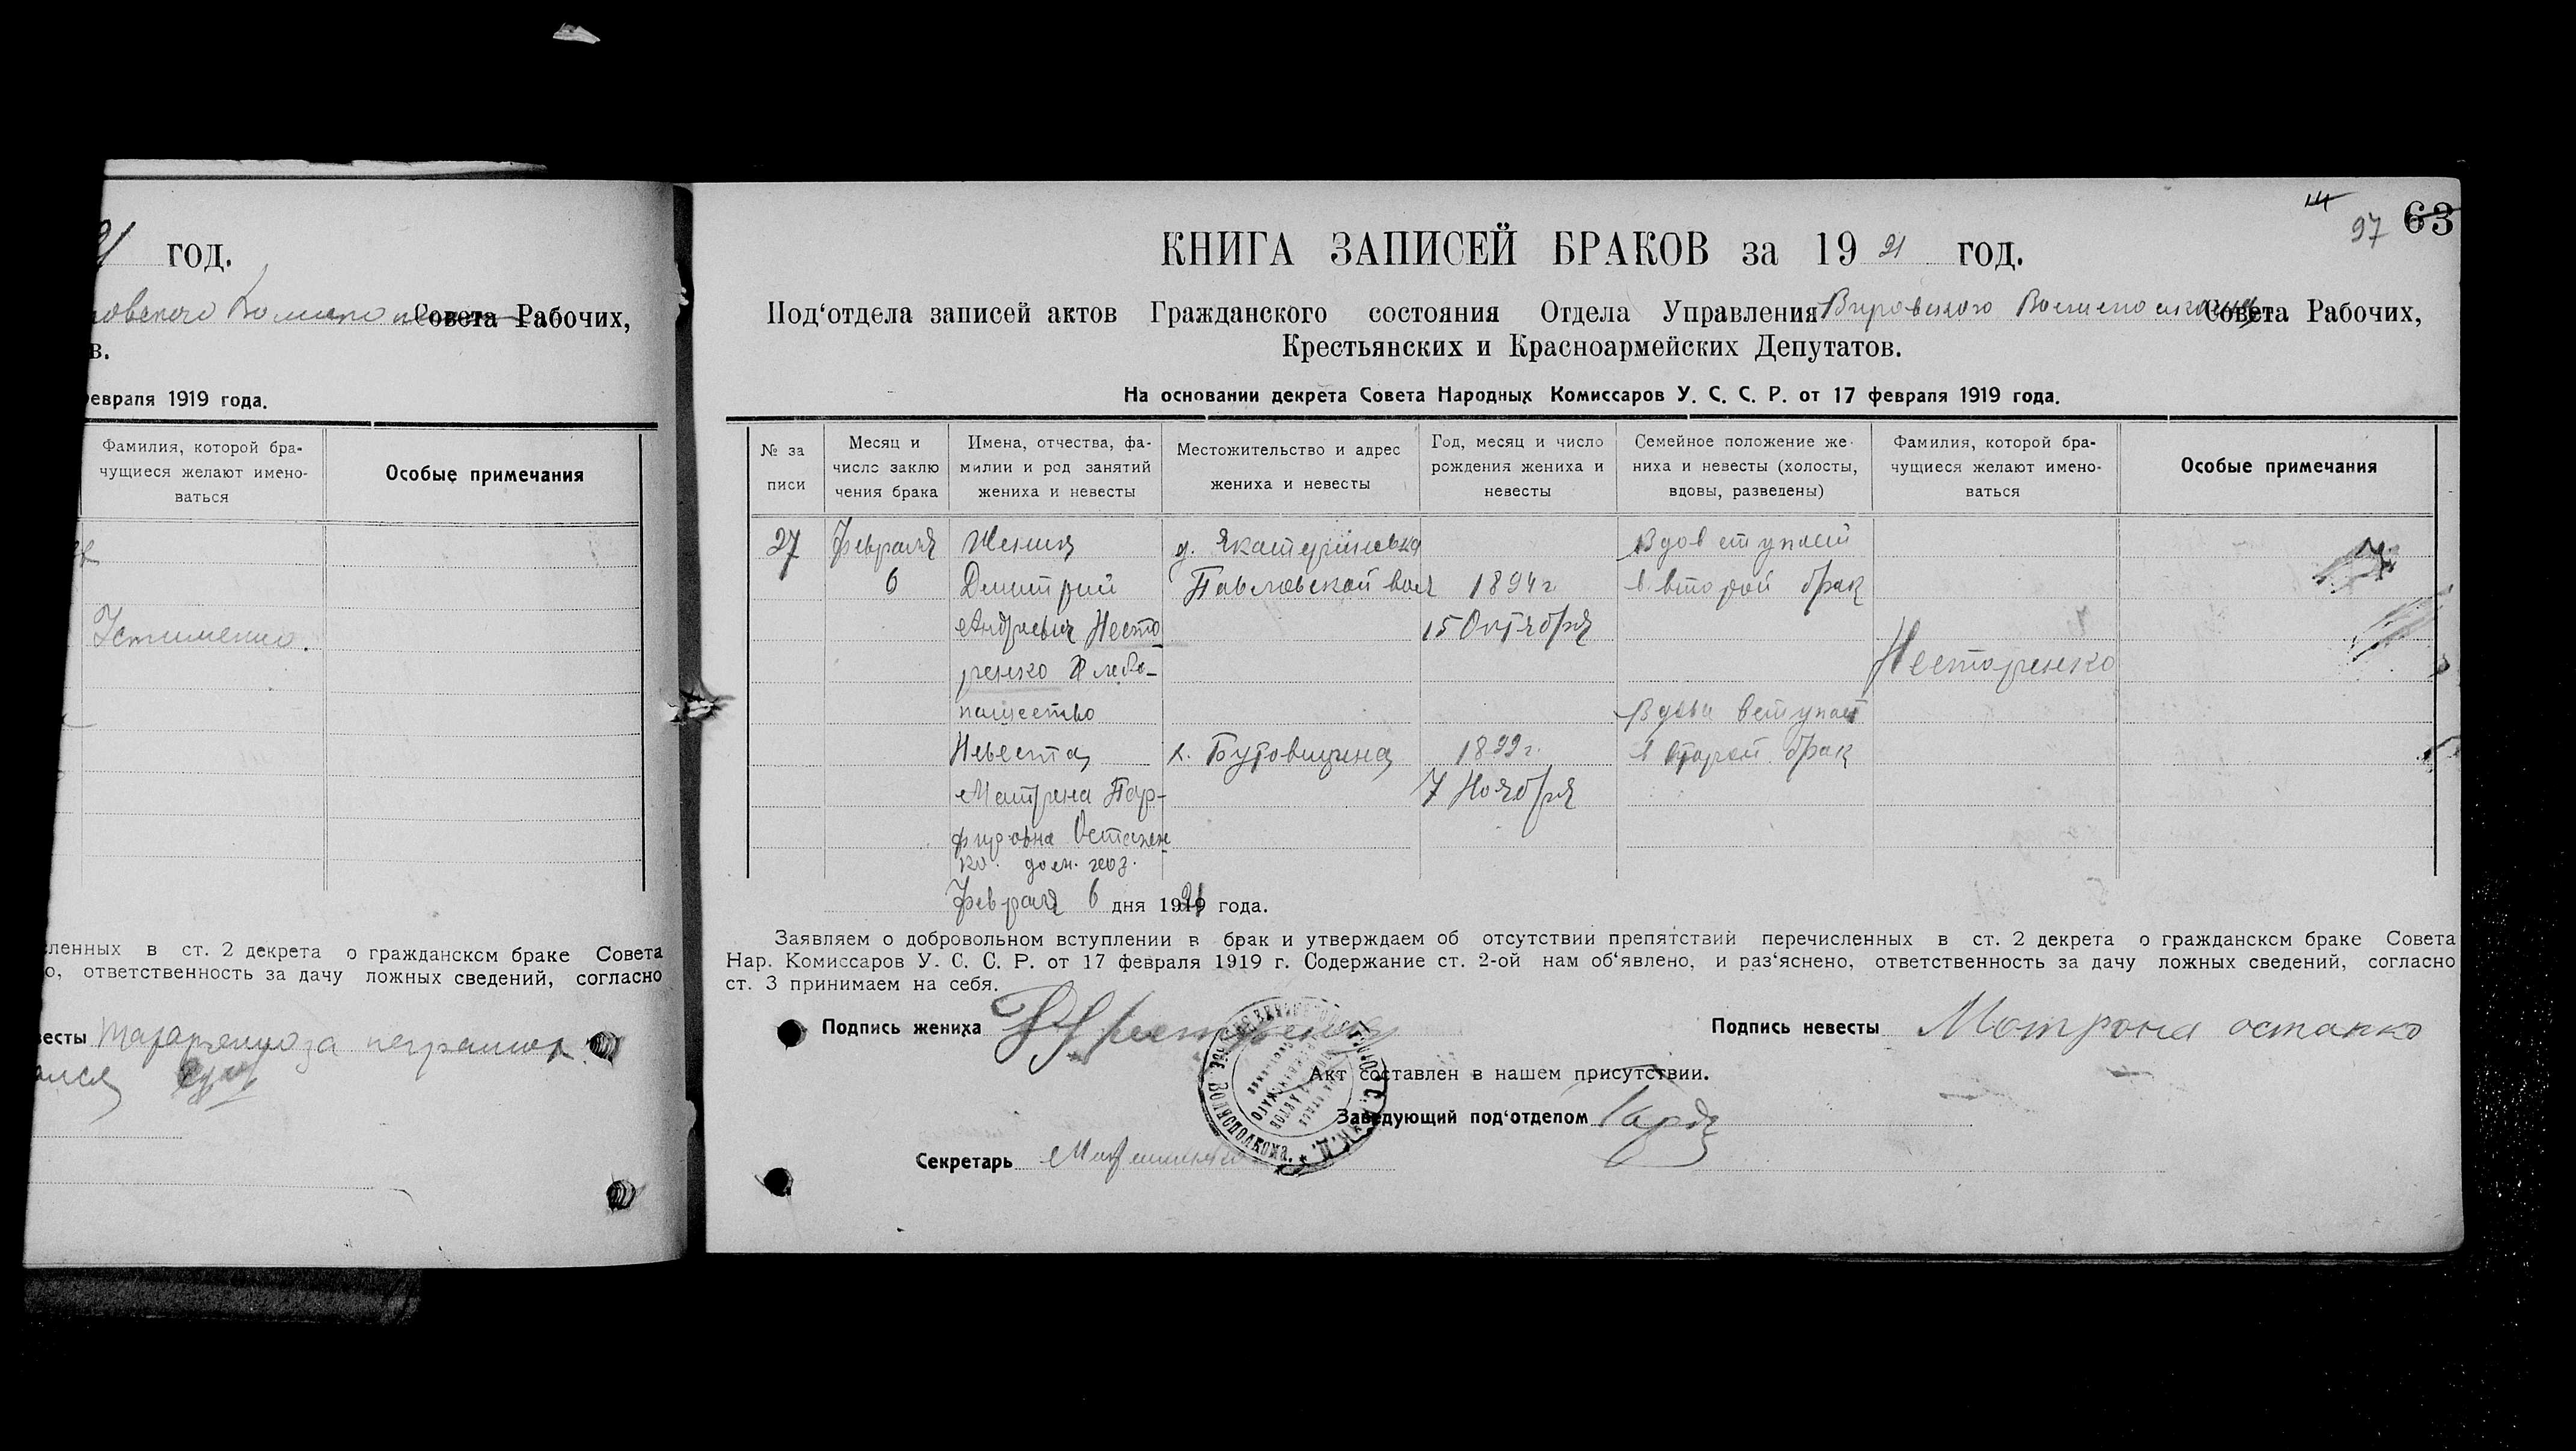 год.
Совета Рабочих,
в.
февраля 1919 года.
Фамилия, которой бра-
чущиеся желают имено-
ваться
Особые примечания
Устименко.
сленных в ст. 2 декрета о гражданском браке Совета
о, ответственность за дачу ложных сведений, согласно
весты
63
97
КНИГА ЗАПИСЕЙ БРАКОВ за 19 21 год.
Под‘отдела записей актов Гражданского состояния Отдела Управления Вировского Совета Рабочих,
Крестьянских и Красноармейских Депутатов.
На основании декрета Совета Народных Комиссаров У. С. С. Р. от 17 февраля 1919 года.
№ за
писи
Месяц и
число заклю
чения брака
Имена, отчества, фа-
милии и род занятий
жениха и невесты
Местожительство и адрес
жениха и невесты
Год, месяц и число
рождения жениха и
невесты
Семейное положение же-
ниха и невесты (холосты,
вдовы, разведены)
Фамилия, которой бра-
чущиеся желают имено-
ваться
Особые примечания
27
Февраля
6
Жених
Дмитрий
Андреевич Несто
ренко Хлебо-
пашество
Невеста
Матрена Пар-
фировна Остапен
ко. дом. хоз.
д.
Павловской вол
х. Бутовщина
1894 г
15 Октября
1899 г.
7 Ноября
Вдов ступает
в второй брак
Вдова вступает
в второй брак
Несторенко
Февраля 6 дня 1921 года.
Заявляем о добровольном вступлении в брак и утверждаем об отсутствии препятствий перечисленных в ст. 2 декрета о гражданском браке Совета
Нар. Комиссаров У. С. С. Р. от 17 февраля 1919 г. Содержание ст. 2-ой нам об‘явлено, и раз‘яснено, ответственность за дачу ложных сведений, согласно
ст. 3 принимаем на себя.
Подпись жениха
Подпись невесты Мотрона остапко
Акт составлен в нашем присутствии.
Заведующий под‘отделом
Секретарь